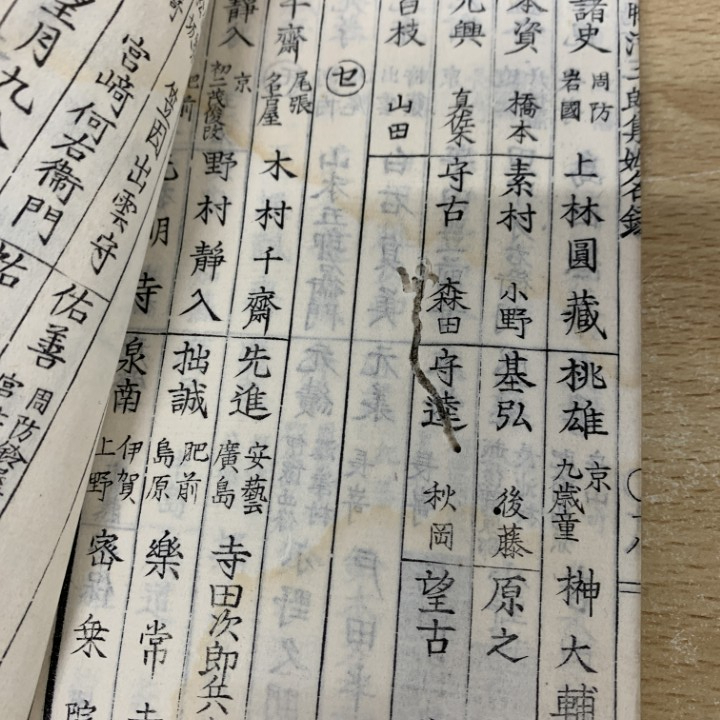 集姓名録
諸史 周防岩國 上林圓藏 桃雄 京九歳童 榊大輔
本資 橋本 素村 小野 基弘 後藤 原之
元興 真佐木 守古 森田 守逵 秋岡 望古
百枝 山田
㋝
千齋 尾張名古屋 木村千齋 先進 安藝廣島 寺田次郎兵
靜入 京初二茂俊改 野村靜入 拙誠 肥前島原 樂常
明 寺 泉南 伊賀上野 密乗院
出雲守 佑善 周防
宮﨑何右衞門 祐
望月九